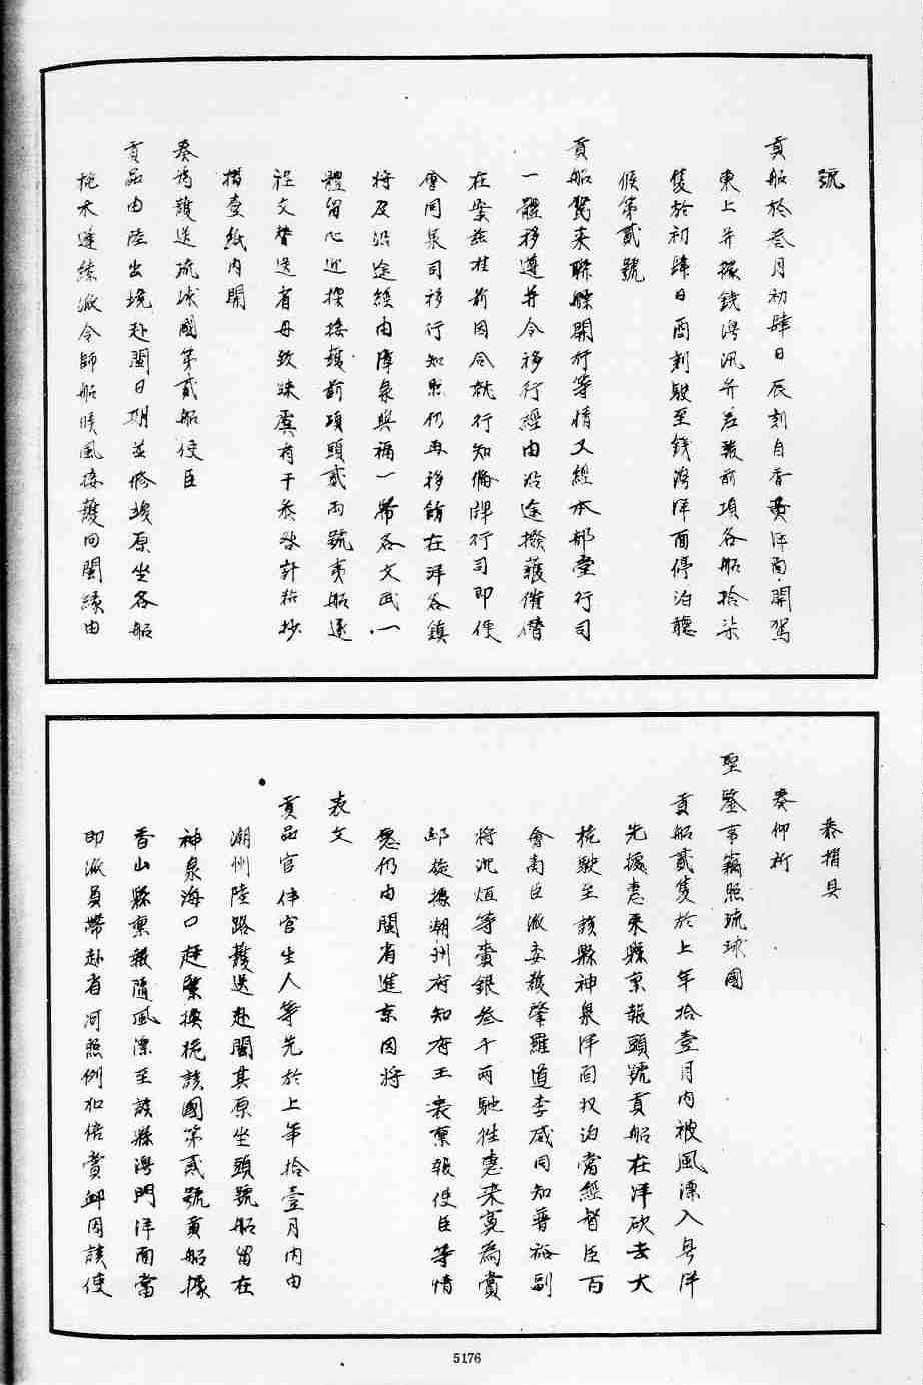 號
貢船於叁月初肆日辰刻自香黄洋面開駕
東上并據錢灣汛弁差報前項各船拾柒
隻於初肆日酉刻駛至錢灣洋面停泊聽
候第貳號
貢船駕來聯䑸開行等情又經本部堂行司
一體移遵并令移行經由沿途撥護催儧
在案兹准前因合就行知備牌行司即便
會同臬司移行知照仍再移飭在洋各鎮
將及沿途經由漳泉興福一帶各文武一
體留心迎探接護前項頭貳両號夷船逐
程交替送省毋致踈虞有干叅咎計粘抄
摺壹紙内開
奏為護送琉球國第貳船使臣
貢品由陸出境赴閩日期並修竣原坐各船
桅木蓬繚派令師船候風接護回閩緣由
恭摺具
奏仰祈
聖鑒事竊照琉球國
貢船貳隻於上年拾壹月内被風漂入粤洋
先據惠来縣禀報頭號貢船在洋砍去大
桅駛至該縣神泉洋面收泊當經督臣百
會南臣派委護肇羅道李威同知普裕副
將沈烜等賫銀叁千両馳徃惠来寔為賞
䘏旋據潮州府知府王表禀報使臣等情
愿仍由閩省進京因將
表文
貢品官伴官生人等先於上年拾壹月内由
潮州陸路護送赴閩其原坐頭號船留在
神泉海口趕緊換桅該國第貳號貢船據
香山縣禀報隨風漂至該縣澚門洋面當
即派員帶赴省河照例加倍賞䘏因該使
5176